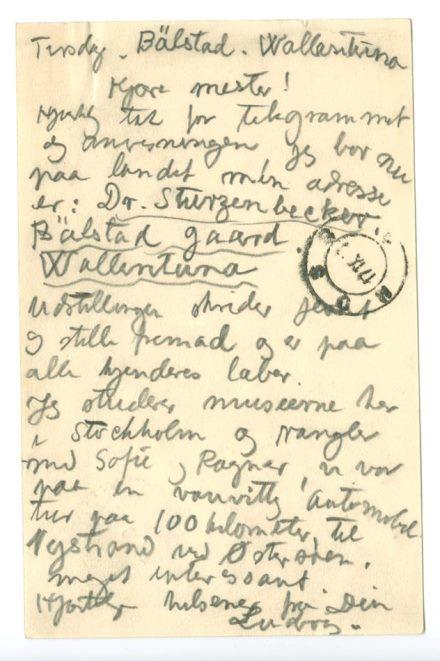 Tirsdag. Bälstad. Wallentuna
Kjære mester!
Hjertelig tak for telegrammet
og anvisningen jeg bor nu
paa landet min adresse
er: Dr. Sturzenbecker.
Bälstad gaard
Wallentuna
Udstillingen skrider jevnt
og stille fremad og er paa
alle kjenderes læber.
Jeg studerer museerne her
i Stockholm og rangler
med Sofie og Ragnar, vi var
paa en vanvittig automobil
tur paa 100 kilometer, til
Nystrand ved Østersøen.
meget interessant
Hjertelig hilsener fra Din
Ludvig.